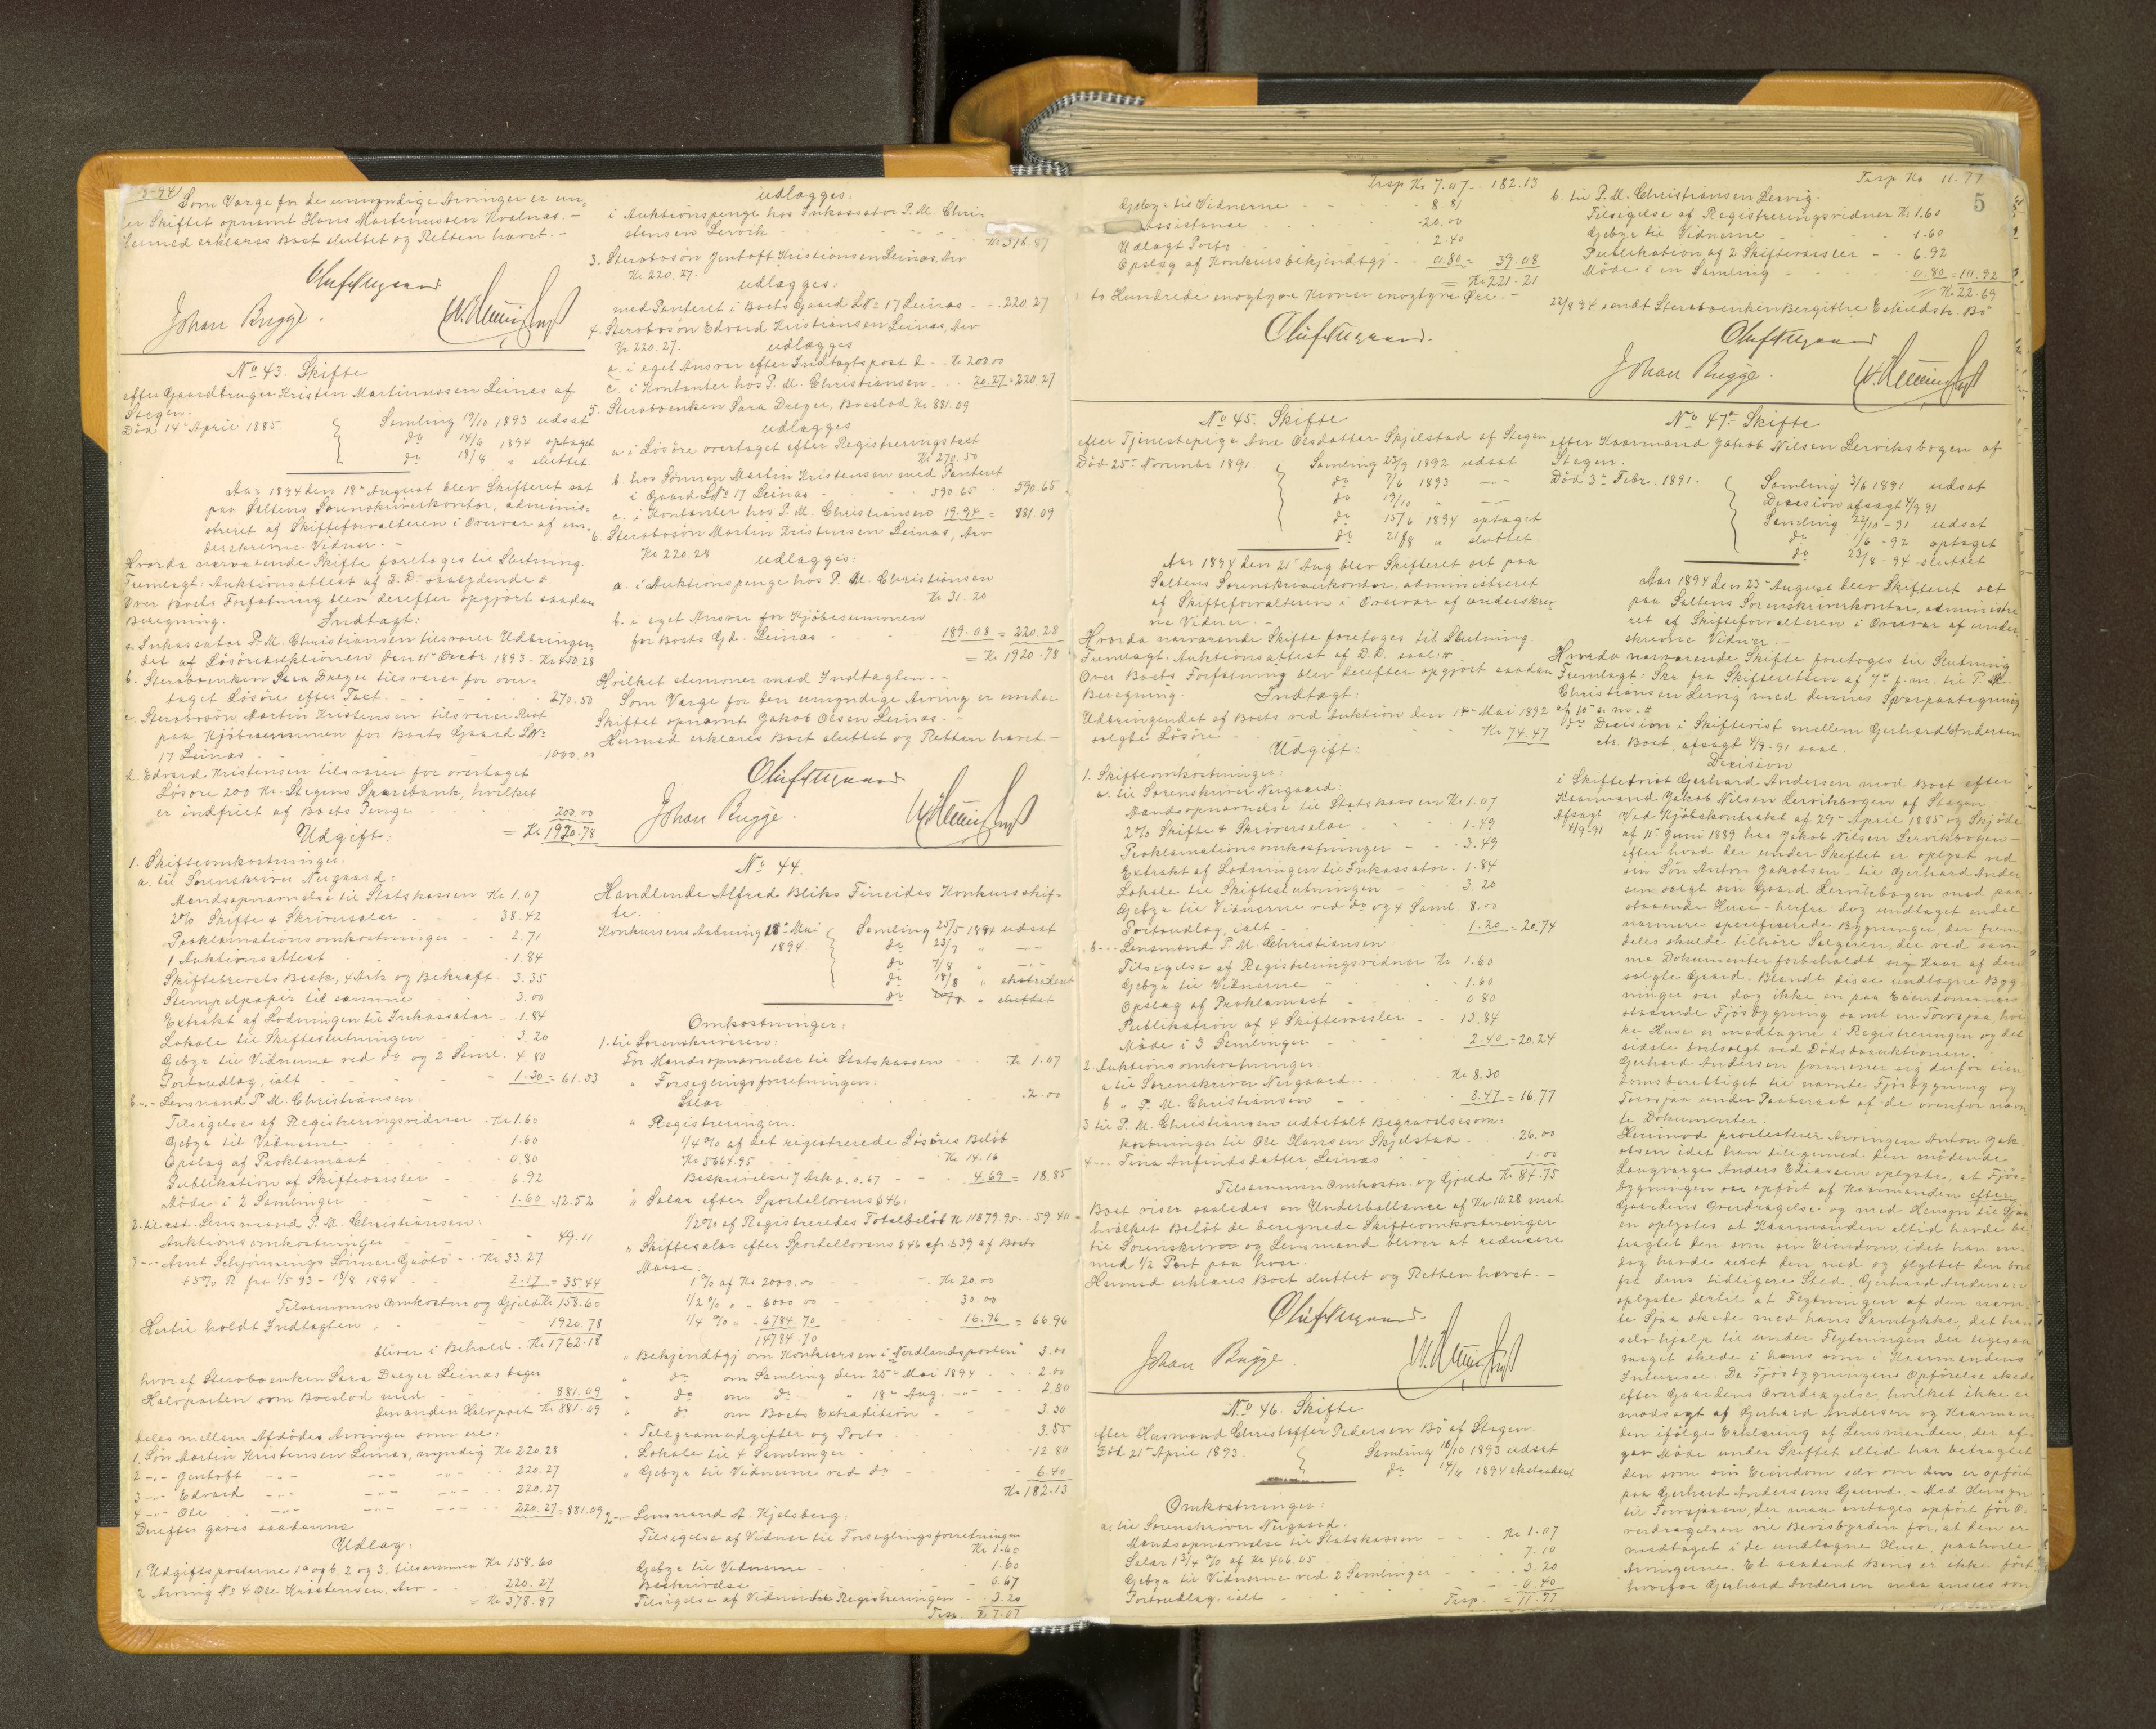 3-94)
Som Værge for de umyndige Arvinger er un-
der Skiftet opnævnt Hans Martinussen Kvalnæs. -
Hermed erklæres Boet sluttet og Retten hævet. -
Oluf Nergaard
Johan Bugge.
No 43. Skifte
efter Gaardbruger Kristen Martinussen Leinæs af
Stegen.
Død 14de April 1885.
Samling 19/10 1893 udsat
do 14/6 1894 optaget
do 18/8 " sluttet.
Aar 1894 den 18de August blev Skifteret sat
paa Saltens Sorenskriverkontor, adminis-
streret af Skifteforvalteren i Overvær af un-
derskrevne Vidner. -
Hvorda nærværende Skifte foretoges til Slutning.
Fremlagt: Auktionsattest af D.D. saalydende #.
Over Boets Forfatning blev derefter opgjort saadan
Beregning.
Indtægt:
a. Inkassator P. M. Christiansen tilsvarer Udbringen-
det af Løsøreauktionen den 11te Decbr 1893 - Kr 450.28
b. Sterboenken Sara Dreyer tilsvarer for over-
taget Løsøre efter Taxt - 270.50
c. Sterbosøn Martin Kristensen tilsvarer Rest
paa Kjøbesummen for Boets Gaard LNo
17 Leinæs - 1000.00
d. Edvard Kristensen tilsvarer for overtaget
Løsøre 200 Kr. Stegens Sparebank, hvilket
er indfriet af Boets Penge - 200.00
= Kr 1920.78
Udgift:
1. Skifteomkostninger:
a. til Sorenskriver Nergaard:
Mandsopnævnelse til Statskassen Kr 1.07
2% Skifte & Skriversalær - 38.42
Proklamationsomkostninger - 2.71
1 Auktionsattest - 1.84
Skiftebrevets Besk, 4 Ark og Bekræft. 3.35
Stempelpapir til samme - 3.00
Extrakt af Lodningen til Inkassator - 1.84
Lokale til Skifteslutningen - 3.20
Gebyr til Vidnerne ved do og 2 Saml. 4.80
Portoudlæg, ialt - 1.30 = 61.53
b. -"- Lensmand P. M. Christiansen:
Tilsigelse af Registreringsvidner - Kr 1.60
Gebyr til Vidnerne 1.60
Opslag af Proklamaet 0.80
Publikation af Skiftevarsler - 6.92
Møde i 2 Samlinger 1.60 = 12.52
2. til cst. Lensmand P. M. Christiansen:
Auktionsomkostninger - 49.11
3 -"- Arnt Schjønnings Sønner Grøtø - Kr 33.27
+ 5% R fra 1/5 93 - 18/8 1894 - 2.17 = 35.44
Tilsammen Omkostn og Gjæld Kr 158.60
Hertil holdt Indtægten 1920.78
bliver i Behold - Kr 1762.18
hvoraf Sterboenken Sara Dreyer Leinæs tager
Halvparten som Boeslod med - 881.09
den anden Halvpart Kr 881.09
deles mellem Afdødes Arvinger som ere:
1. Søn Martin Kristensen Leinæs, myndig Kr 220.28
2 -"- Jentoft -"- -"- -"- 220.27
3 -"- Edvard -"- -"- -"- 220.27
4 -"- Ole -"- -"- -"- 220.27 = 881.09
Derefter gaves saadanne
Udlæg:
1. Udgiftsposterne 1 a og b. 2 og 3, tilsammen Kr 158.60
2. Arving No 4 Ole Kristensen, Arv - 220.27
= Kr 378.87
udlægges:
i Auktionspenge hos Inkassator P. M. Chri-
stensen Lervik - Kr 378.87
3. Sterbosøn Jentoft Kristiansen Leinæs, Arv
Kr 220.27.
udlægges:
med Panteret i Boets Gaard LNo 17 Leinæs - - 220.27
4. Sterbosøn Edvard Kristiansen Leinæs, Arv
Kr 220.27.
udlægges
a. i eget Ansvar efter Indtægtspost d - Kr 200.00
c. i Kontanter hos P. M. Christiansen - 20.27 = 220.27
5. Sterboenken Sara Dreyer, Boeslod Kr 881.09
udlægges
a. i Løsøre overtaget efter Registreringstaxt
Kr 270.50
b. hos Sønnen Martin Kristensen med Panteret
i Gaard LNo 17 Leinæs - 590.65 - 590.65
c. i Kontanter hos P. M. Christiansen 19.94 = 881.09
6. Sterbosøn Martin Kristensen Leinæs, Arv
Kr 220.28
udlægges:
a. i Auktionspenge hos P. M. Christiansen
Kr 31.20
b. i eget Ansvar for Kjøbesummen
for Boets Gd. Leinæs - 189.08 = 220.28
= Kr 1920.78
Hvilket stemmer med Indtægten. -
Som Værge for den umyndige Arving er under
Skiftet opnævnt Jakob Olsen Leinæs. -
Hermed erklæres Boet sluttet og Retten hævet -
Oluf Nergaard
Johan Bugge.
No 44.
Handlende Alfred Bliks Fineides Konkursskif-
te.
Konkursens Aabning 18de Mai
1894.
Samling 25/5 1894 udsat
do 23/7 " -"-
do 7/8 " -"-
do 18/8 " ekstraderet
do " sluttet
Omkostninger:
1. til Sorenskriveren:
For Mandsopnævnelse til Statskassen - Kr 1.07
" Forseglingsforretningen:
Salær - 2.00
" Registreringen:
1/4 % af det registrerede Løsøres Beløb
Kr 5664.95 - Kr 14.16
Beskrivelse 7 Ark a 0.67 - 4.69 = 18.85
" Salær efter Sportellovens §46:
1/2 % af Registreredes Totalbeløb Kr 11879.95 - 59.40
" Skiftesalær efter Sportellovens §46 cfr. §39 af Boets
Masse:
1 % af Kr 2000.00 - Kr 20.00
1/2 % " - 6000.00 - 30.00
1/4 % " - 6784.70 - 16.96 = 66.96
14784.70
" Bekjendtgj om Konkursen i "Nordlandsposten" 3.00
" do om Samling den 25de Mai 1894 - 2.00
" do om do " 18de Aug. -"- 2.80
" do om Boets Extradition - 3.30
" Telegramudgifter og Porto - 3.55
" Lokale til 4 Samlinger - 12.80
" Gebyr til Vidnerne ved do - 6.40
Kr 182.13
2 -"- Lensmand A. Kjelsberg:
Tilsigelse af Vidner til Forseglingsforretningen
Kr 1.60
Gebyr til Vidnerne - 1.60
Beskrivelse - 0.67
Tilsigelse af Vidner Registreringen - 3.20
Trsp. Kr 7.07
Trsp Kr 7.07 - 182.13
Gebyr til Vidnerne - 8.81
Assistence - 20.00
Udlagt Porto - 2.40
Opslag af Konkursbekjendtgj - 0.80 = 39.08
= Kr 221.21
to Hundrede enogtyve Kroner enogtyve Øre. -
Oluf Nergaard.
No 45. Skifte
efter Tjenestepige Ane Olsdatter Skjelstad af Stegen
Død 25de November 1891.
Samling 23/9 1892 udsat
do 7/6 1893 -"-
do 19/10 " -"-
do 15/6 1894 optaget
do 21/8 " sluttet
Aar 1894 den 21de Aug blev Skifteret sat paa
Saltens Sorenskriverkontor, administreret
af Skifteforvalteren i Overvær af underskrev-
ne Vidner. -
Hvorda nærværende Skifte foretoges til Slutning.
Fremlagt: Auktionsattest af D.D. saal. #
Over Boets Forfatning blev derefter opgjort saadan
Beregning.
Indtægt:
Udbringendet af Boets ved Auktion den 14de Mai 1892
solgte Løsøre - Kr 74.47
Udgift:
1. Skifteomkostninger:
a. til Sorenskriver Nergaard:
Mandsopnævnelse til Statskassen Kr 1.07
2% Skifte & Skriversalær - 1.49
Proklamationsomkostninger - 3.49
Extrakt af Lodningen til Inkassator - 1.84
Lokale til Skifteslutningen - 3.20
Gebyr til Vidnerne ved do og 4 Saml. 8.00
Portoudlæg, ialt - 1.20 = 20.74
b. -"- Lensmand P. M. Christiansen
Tilsigelse af Registreringsvidner Kr 1.60
Gebyr til Vidnerne - 1.60
Opslag af Proklamaet - 0.80
Publikation af 4 Skiftevarsler - 13.84
Møde i 3 Samlinger 2.40 = 20.24
2. Auktionsomkostninger:
a til Sorenskriver Nergaard - Kr 8.30
b " P. M. Christiansen - 8.47 = 16.77
3 til P. M. Christiansen udbetalt Begravelsesom-
kostninger til Ole Hansen Skjelstad - 26.00
4 -"- Tina Anfindsdatter, Leinæs - 1.00
Tilsammen Omkostn. og Gjæld Kr 84.75
Boet viser saaledes en Underballance af Kr 10.28 med
hvilket Beløb de beregnede Skifteomkostninger
til Sorenskriver og Lensmand bliver at reducere
med 1/2 Part paa hver.
Hermed erklæres Boet sluttet og Retten hævet. -
Oluf Nergaard.
Johan Bugge.
No 46. Skifte
efter Husmand Christoffer Pedersen Bø af Stegen
Død 21de April 1893.
Samling 18/10 1893 udsat
do 14/6 1894 ekstraderet
Omkostninger:
a. til Sorenskriver Nergaard:
Mandsopnævnelse til Statskassen - Kr 1.07
Salær 1 3/4 % af Kr 406.05 - 7.10
Gebyr til Vidnerne ved 2 Samlinger - 3.20
Portoudlæg, ialt - 0.40
Trsp. = 11.77
Trsp Kr 11.77
5
b. til P. M. Christiansen Lervig.
Tilsigelse af Registreringsvidner Kr 1.60
Gebyr til Vidnerne - 1.60
Publikation af 2 Skiftevarsler - 6.92
Møde i en Samling - 0.80 = 10.92
Kr 22.69
22/8 94 sendt Sterboenken Bergithe Eskildstr. Bø
Oluf Nergaard
Johan Bugge.
No 47de Skifte
efter Kaarmand Jakob Nilsen Lerviksbogen af
Stegen.
Død 3de Febr. 1891.
Samling 2/6 1891 udsat
Decision afsagt 4/9 91
Samling 22/10 - 91 udsat
do 1/6 - 92 optaget
do 23/8 - 94 sluttet
Aar 1894 den 23de August blev Skifteret sat
paa Saltens Sorenskriverkontor, administre
ret af Skifteforvalteren i Overvær af under
skrevne Vidner. -
Hvorda nærværende Skifte foretoges til Slutning
Fremlagt: Skr fra Skifteretten af 7de f.m. til P. M.
Christiansen Lervig med dennes Svarpaategning
af 10de s.m. #
do Decision i Skiftetvist mellem Gerhard Andersen
ctr. Boet, afsagt 4/9-91 saal.
Decision
i Skiftetvist Gerhard Andersen mod Boet efter
Kaarmand Jakob Nilsen Lervikbogen af Stegen.
Afsagt
4/9 91
Ved Kjøbekontrakt af 29de April 1885 og Skjøde
af 11te Juni 1889 har Jakob Nilsen Lervikbogen -
efter hvad der under Skiftet er oplyst ved
sin Søn Anton Jakobsen - til Gerhard Ander
sen solgt sin Gaard Lervikbogen med paa-
staaende Huse - herfra dog undtaget endel
nærmere specificerede Bygninger, der frem
deles skulde tilhøre Sælgeren, der ved sam
me Dokumenter forbeholdt sig Kaar af den
solgte Gaard. Blandt disse undtagne Byg-
ninger var dog ikke en paa Eiendommen
staaende Fjøsbygning samt en Torvspaa, hvil
ke Huse er medtagne i Registreringen og det
sidste bortsolgt ved Dødsboauktionen.
Gerhard Andersen formener sig derfor eien-
domsberettiget til nævnte Fjøsbygning og
Torvspaa under Paaberaab af de ovenfor nævn
te Dokumenter.
Herimod protesterer Arvingen Anton Jak-
obsen idet han tilligemed den mødende
Laugværge Anders Eliassen oplyste, at Fjøs-
bygningen var opført af Kaarmanden efter
Gaardens Overdragelse og med Hensyn til Spaa
en oplystes at Kaarmanden altid havde be
tragtet den som sin Eiendom, idet han en-
dog havde revet den ned og flyttet den bort
fra dens tidligere Sted. Gerhard Andersen
oplyste dertil at Flytningen af den nævn-
te Spaa skede med hans Samtykke, det han
selv hjalp til under Flytningen der ligesaa
meget skede i hans som i Kaarmandens
Interesse. Da Fjøsbygningens Opførelse skede
efter Gaardens Overdragelse, hvilket ikke er
modsagt af Gerhard Andersen og Kaarman-
den ifølge Erklæring af Lensmanden, der af-
gav Møde under Skiftet altid har betragtet
den som sin Eiendom selv om den er opført
paa Gerhard Andersens Grund. - Med Hensyn
til Torvspaaen, der maa antages opført før O-
verdragelsen vil Bevisbyrden for, at den er
medtaget i de undtagne Huse, paahvile
Arvingerne. Et saadant Bevis er ikke ført
hvorfor Gerhard Andersen maa ansees som